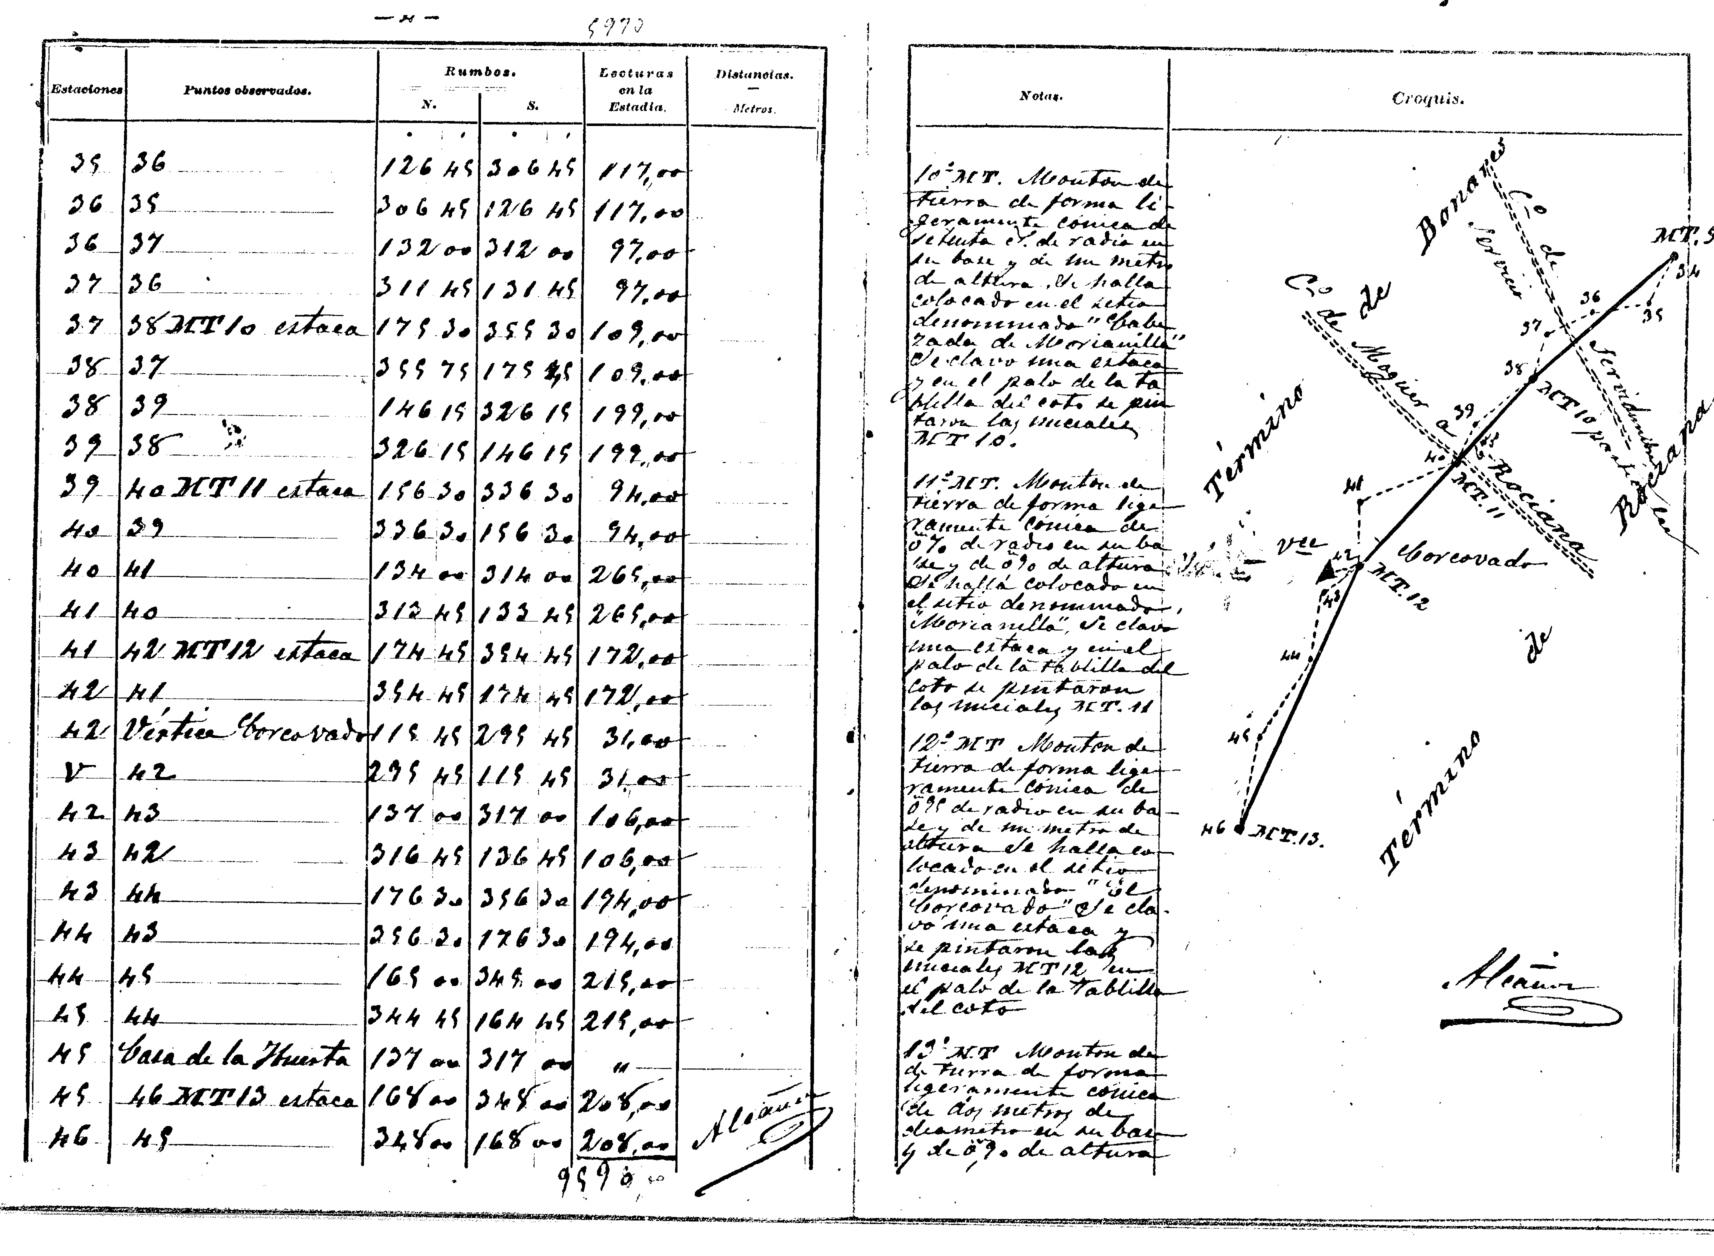 5970
Estaciones Puntos observados. Rumbos. N. S. Lecturas en la Estadia. Distancias. — Metros.
35 36 126 45 306 45 117,00
36 35 306 45 126 45 117,00
36 37 132 00 312 00 97,00
37 36 311 45 131 45 97,00
37 38 MT 10 estaca 175 30 355 30 109,00
38 37 355 75 175 45 109,00
38 39 146 15 326 15 199,00
39 38 326 15 146 15 199,00
39 40 MT 11 estaca 156 30 336 30 94,00
40 39 336 30 156 30 94,00
40 41 134 00 314 00 265,00
41 40 313 45 133 45 265,00
41 42 MT 12 estaca 174 45 354 45 172,00
42 41 354 45 174 45 172,00
42 Vértice Corcovado 115 45 295 45 31,00
V 42 295 45 115 45 31,00
42 43 137 00 317 00 106,00
43 42 316 45 136 45 106,00
43 44 176 30 356 30 194,00
44 43 356 30 176 30 194,00
44 45 165 00 345 00 215,00
45 44 344 45 164 45 215,00
45 Casa de la Huerta 137 00 317 00 "
45 46 MT 13 estaca 168 00 348 00 208,00
46 45 348 00 168 00 208,00
Alcañiz
Notas. Croquis.
10º MT. Monton de
tierra de forma li-
geramente cónica de
setenta c. de radio en
su base y de un metro
de altura. Se halla
colocado en el sitio
denominado "Cabe
zada de Morianilla"
Se clavo una estaca
y en el palo de la ta
blilla del coto se pin
taron las iniciales
MT 10.
11º MT. Monton de
tierra de forma lige
ramente cónica de
de radio en su ba
se y de de altura
Se halla colocado en
el sitio denominado
"Morianilla", Se clavo
una estaca y en el
palo de la tablilla del
coto se pintaron
las iniciales MT. 11
12º MT Monton de
tierra de forma lige-
ramente cónica de
de radio en su ba-
se y de un metro de
altura Se halla co-
locado en el sitio
denominado "El
Corcovado" Se cla-
vo una estaca y
se pintaron las
iniciales MT 12 en
el palo de la tablilla
del coto
13º MT Monton de
de tierra de forma
ligeramente cónica
de dos metros de
diametro en su base
y de 0,90 de altura
Término de Bonares
Cº de Servicio
Servidumbre
para las
Cº de Moguer a Rociana
MT. 9
34
35
36
37
38
MT 10
39
40
MT. 11
41
Vce Corcovado
42
MT. 12
43
44
45
46 MT. 13.
Término de Rociana
Alcañiz